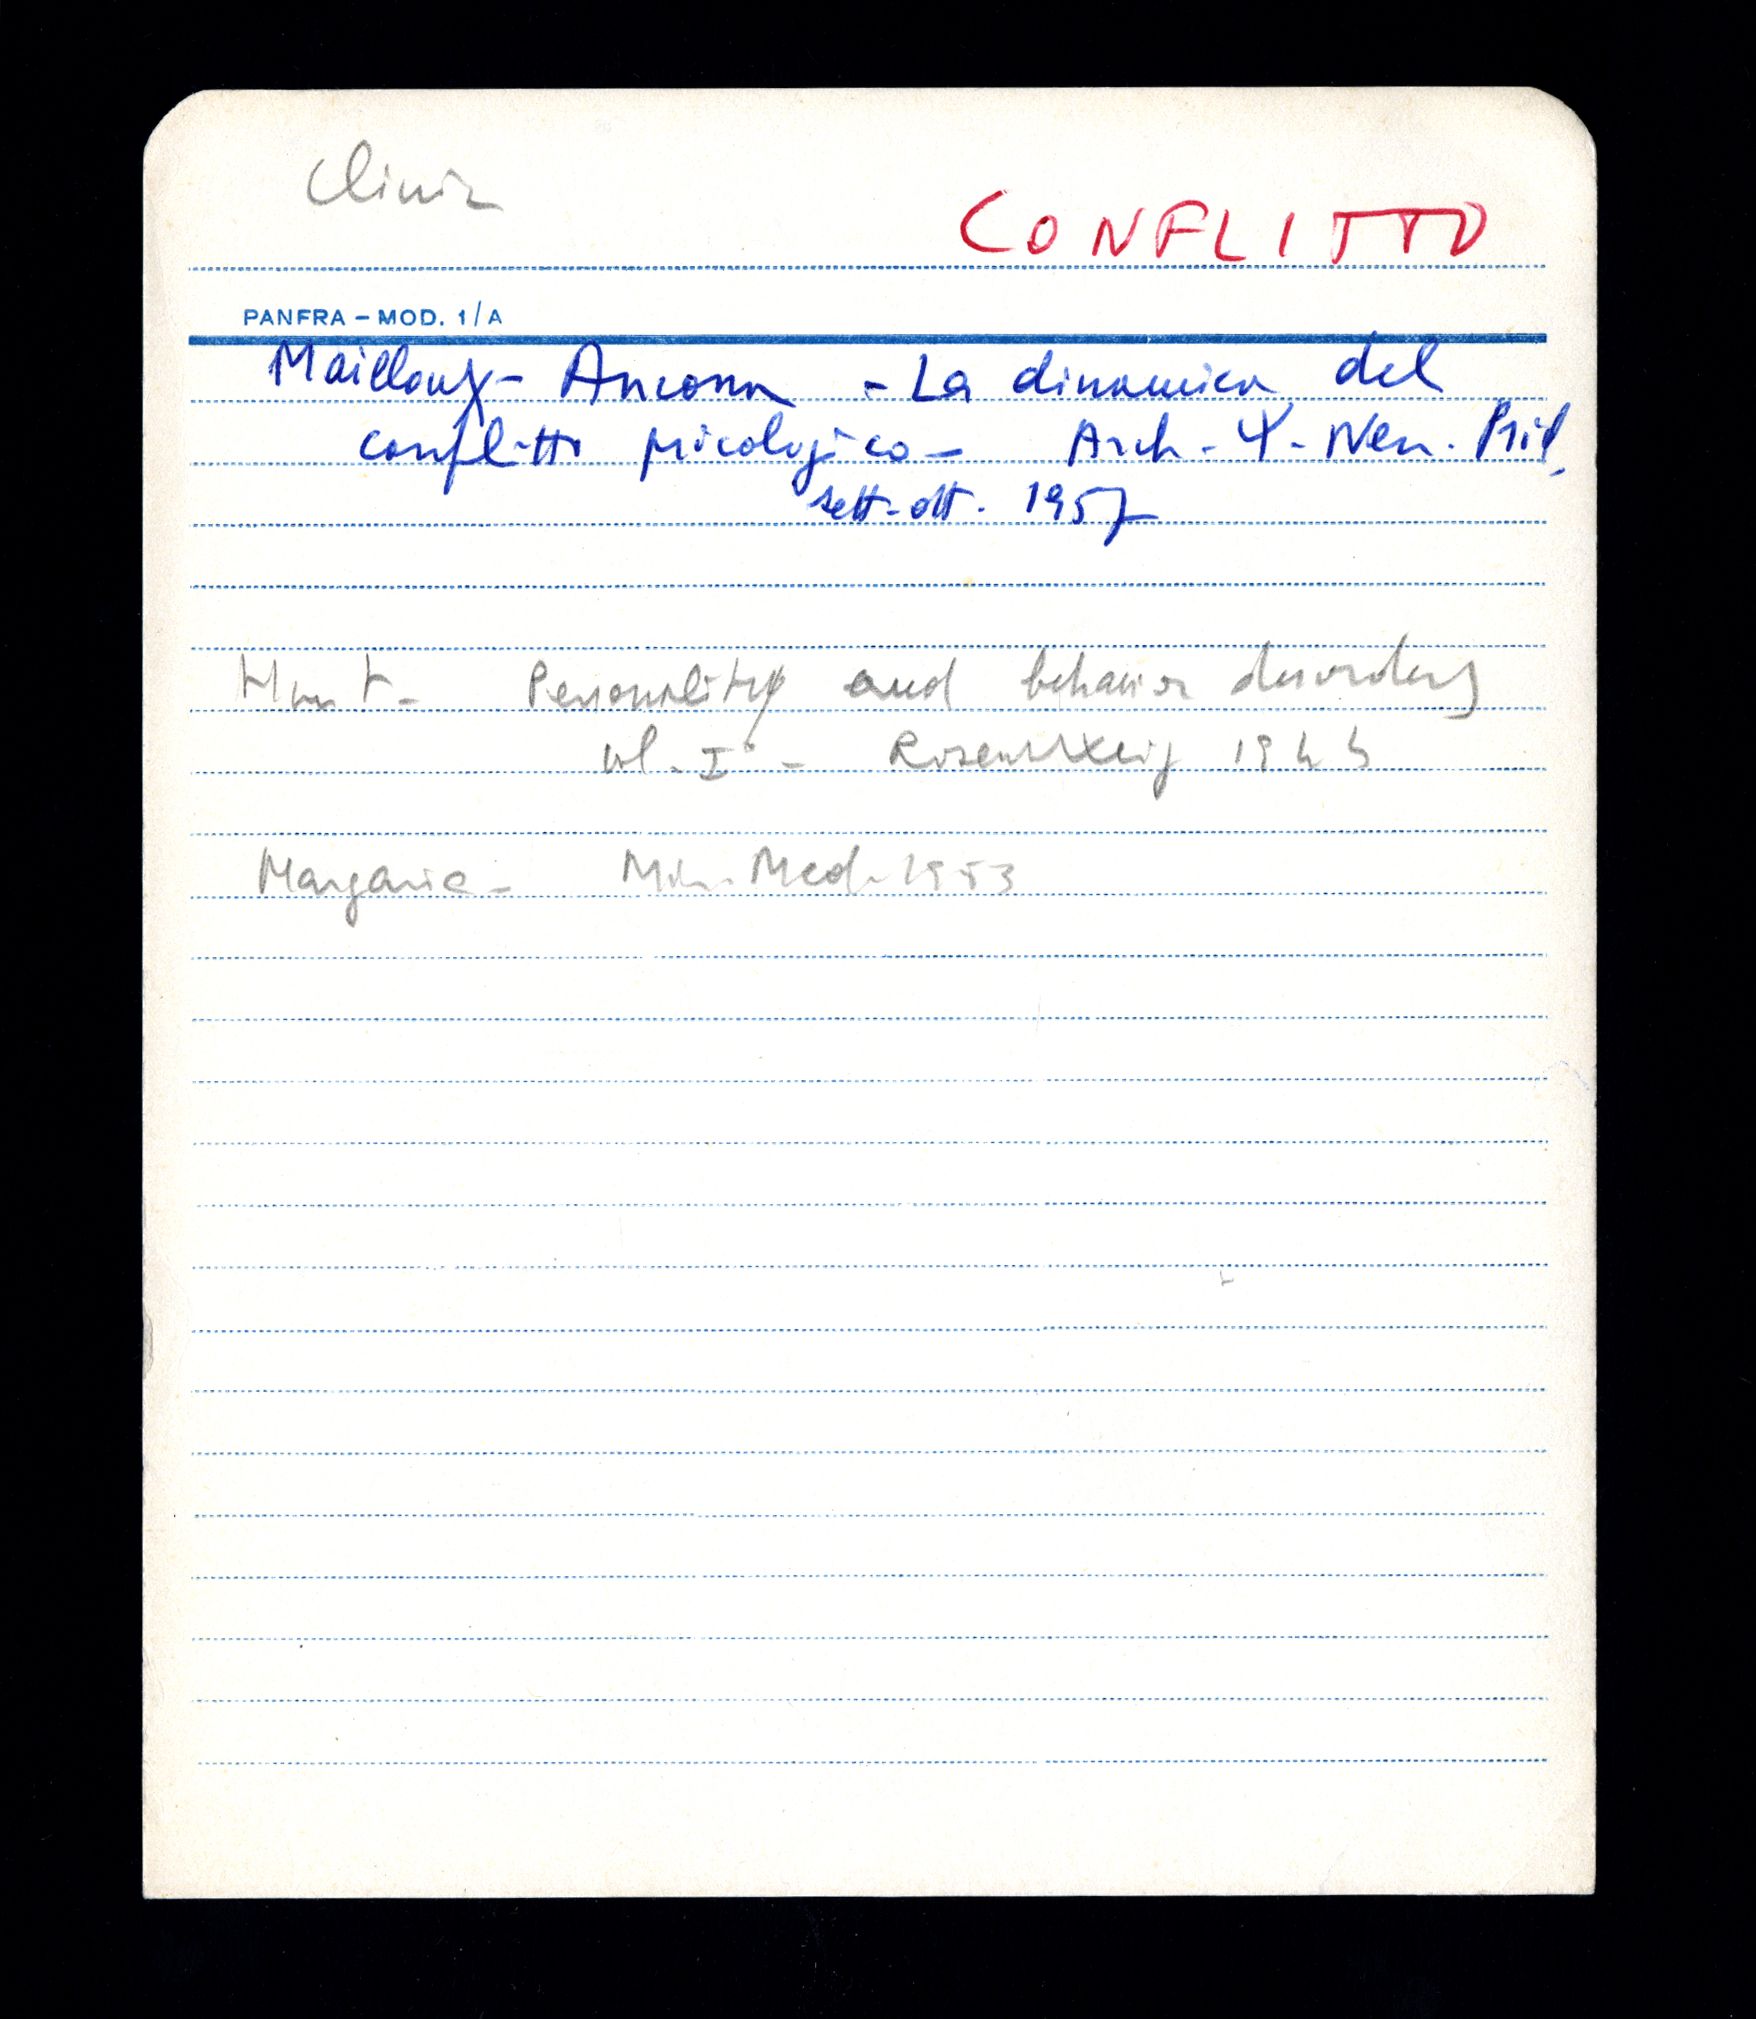 Clinica
CONFLITTO
PANFRA – MOD. 1/A
Mailloux – Ancona – La dinamica del
conflitto psicologico – Arch. Ψ. Neu. Psic.
sett-ott. 1957
Hunt – Personality and behavior disorders
vol. I° – Rosenzweig 1944
Min. Med. 1953